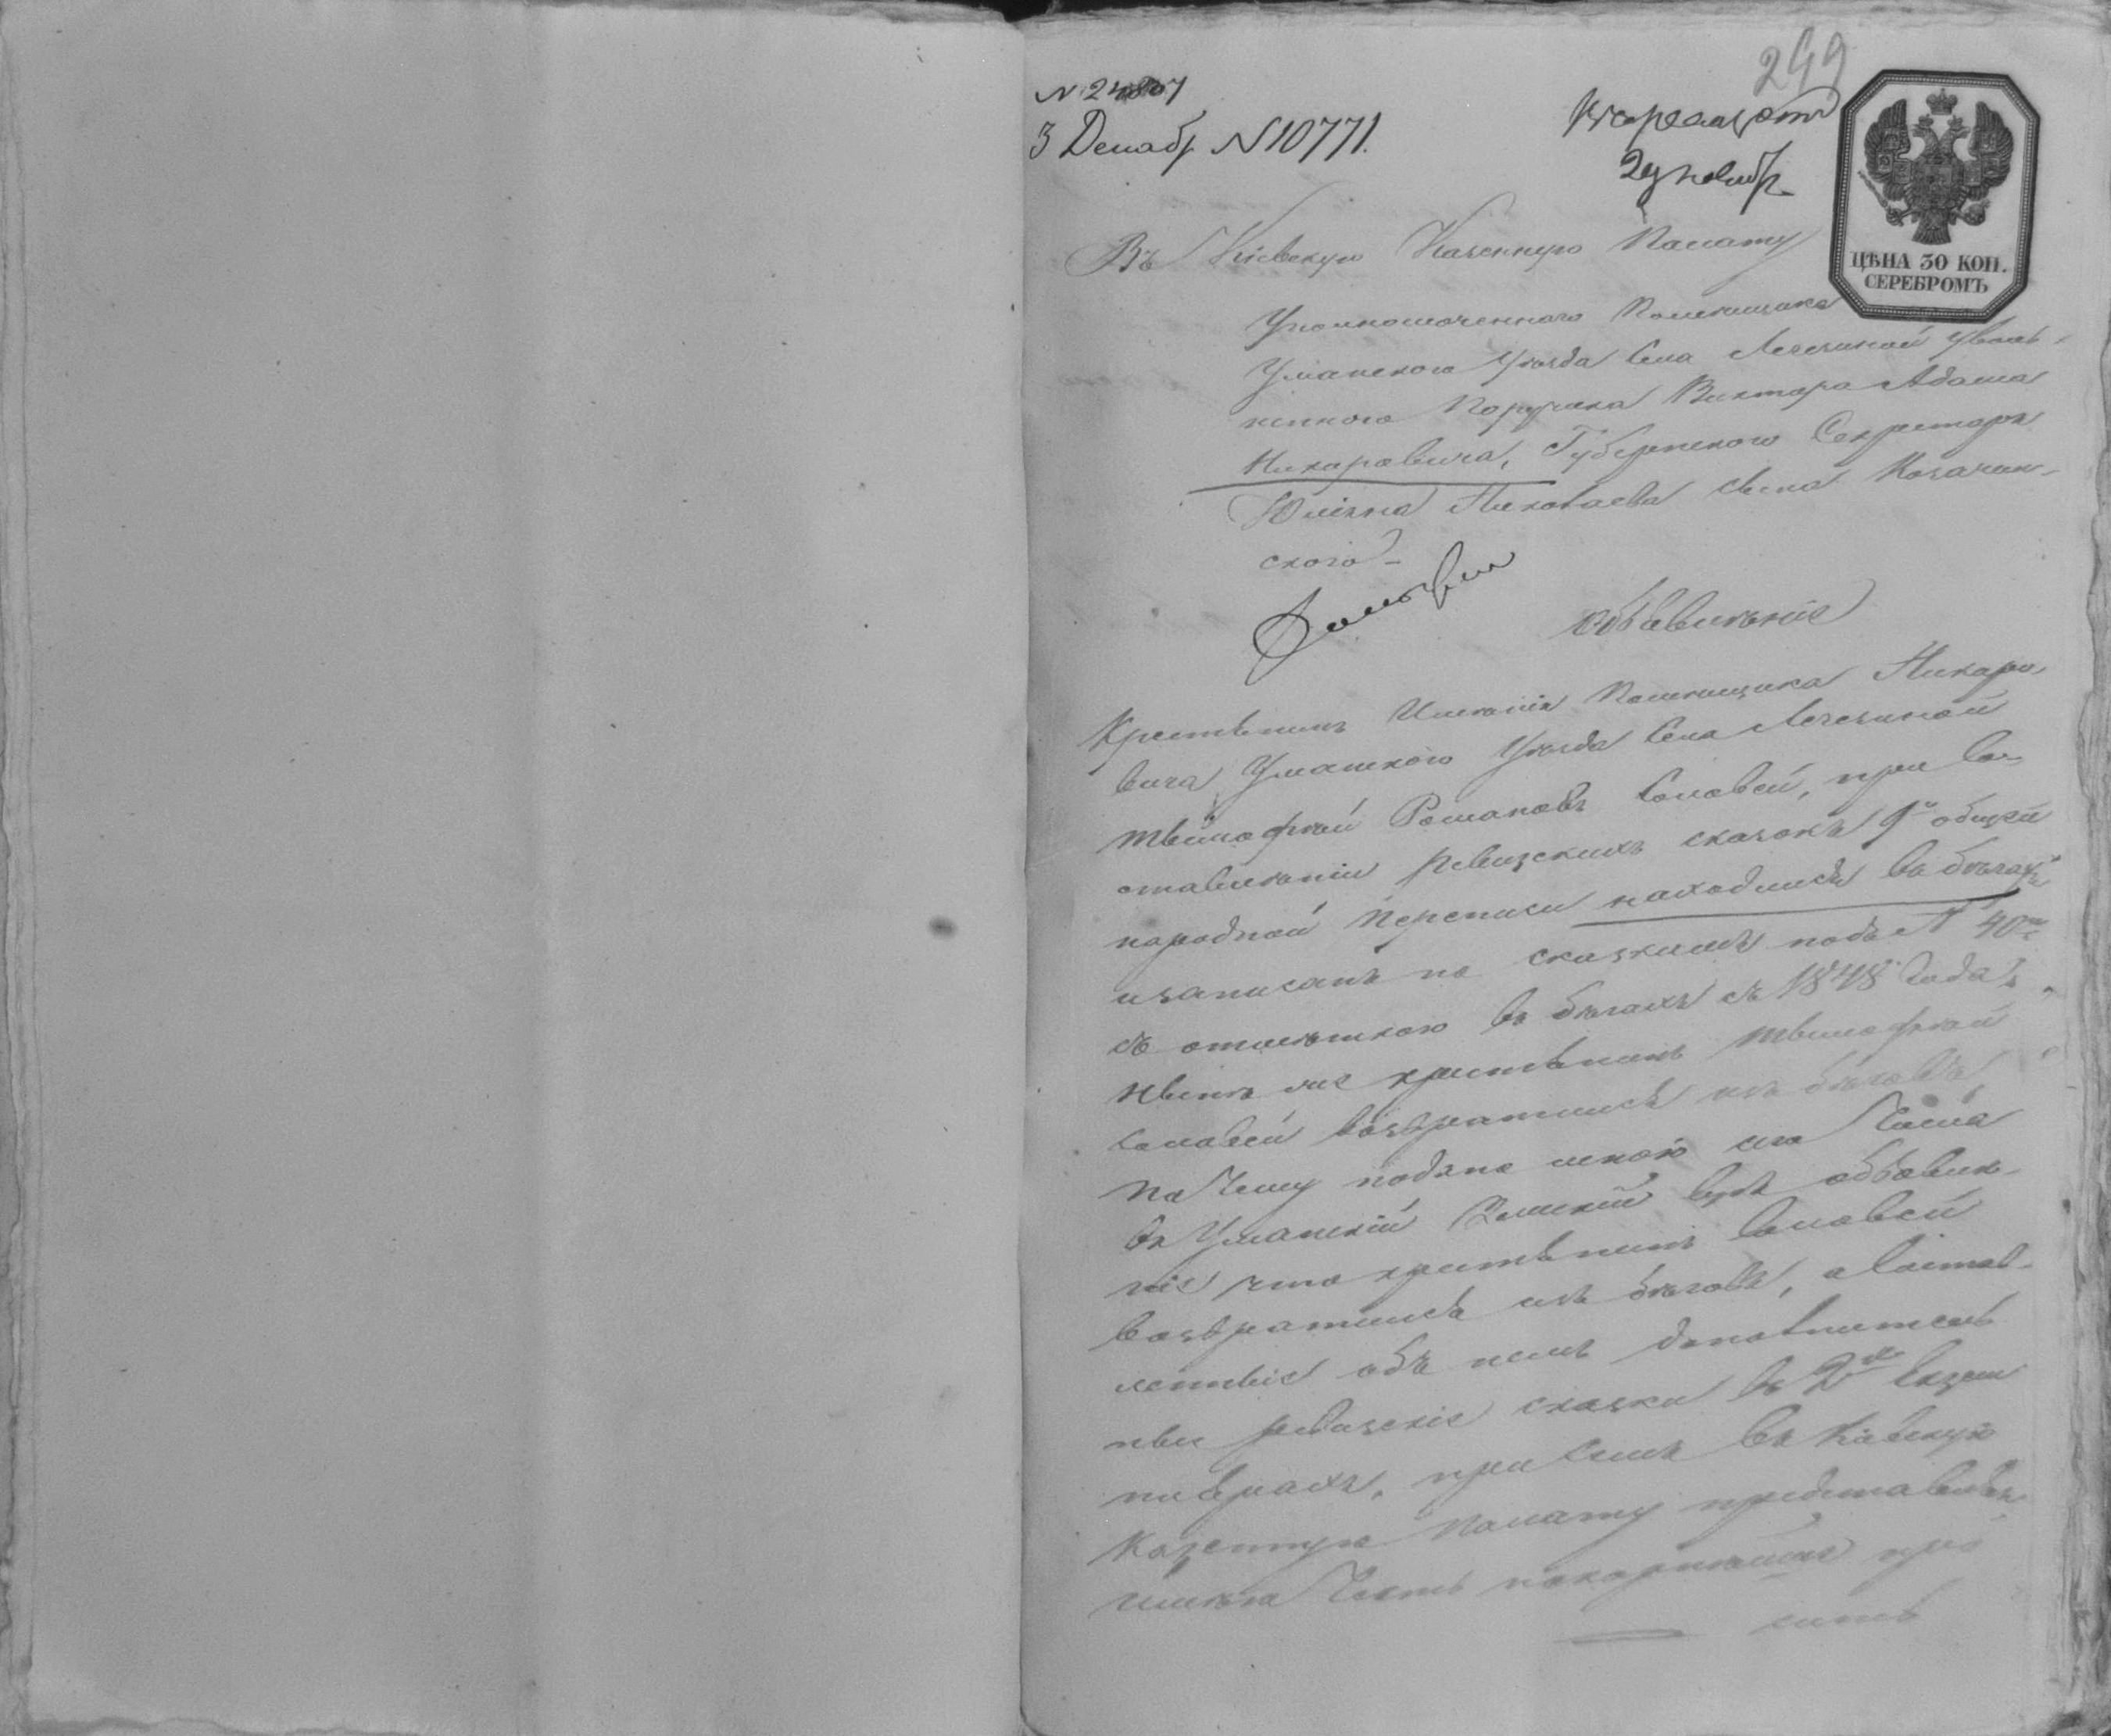 249
N 24807
3 Декабр N 10771.
29 ноябр.
ЦѢНА 30 КОП.
СЕРЕБРОМЪ
Въ Кіевскую Казенную Палату
Уполномоченнаго Помещика
Уманского Уезда Села уволь-
неннаго Поручика Виктора Адама
Губернского Секретаря
Юліяна Николаева сына Козачин-
ского
объявленіе
Крестьянинъ Именія Помещика
вича Уманского Уезда Села
Тимофей Романовъ Соловей, при со-
ставленіи Ревизскихъ сказокъ 9й общей
народной Переписи находился въ бегахъ
и записанъ по сказкамъ под N 40мъ
съ отметкою въ бегахъ съ 1848 года,
Ныне же крестьянинъ Тимофей
Соловей возвратился изъ беговъ,
По чему подано мною
въ Уманскій Земскій Судъ объявле-
ніе что крестьянинъ Соловей
возвратился изъ беговъ, а состав-
ленные объ немъ дополнитель-
ныя ревизскіе сказки въ 2хъ Екзем-
плярахъ, при семъ въ Кіевскую
Казенную Палату представляя
имею Честь покорнейше про-
сить